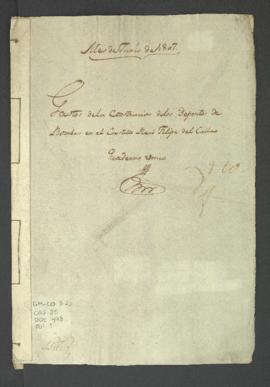 Mes de Junio de 1807.
Gastos de la Construccion de los Depositos de
Bombas en el Castillo Real Felipe del Callao
Quaderno Unico
GM-CO 3.2
CAJ. 25
DOC 493